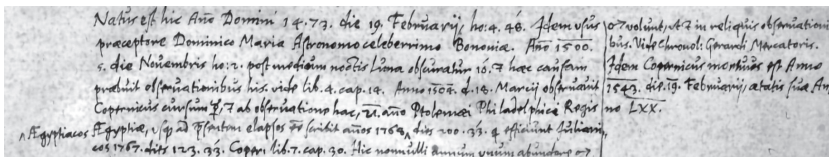 Natus est hic Año Domini 14.73. die 19. Februarij, ho: 4. 48. Idem usus
præceptore Dominico Maria Astronomo celeberrimo Bononiæ. Año 1500.
5. die Novembris ho: 2. post medium noctis Luna obscuratur hæc causam
præbuit observationibus his. vide lib. 4. cap. 14. Anno 1504. d. 18. Martij observavit
Copernicus cursum ab observatione hac, año Ptolemæi Philadelphicæ Regis
Ægyptiacos Ægyptiæ, usq ad elapsos scribit años 1768 dies 200. 33. q efficiunt Iuliani
cos 1767. dies 123. 33. Coper: lib. 7. cap. 30. Hic nonnulli annum unum abundare
volunt, in reliquis observationi
bus. Vide Chronol: Gerardi Mercatoris.
Idem Copernicus mortuus est Anno
1543. die. 19. Februarij, ætatis suæ An
no LXX.